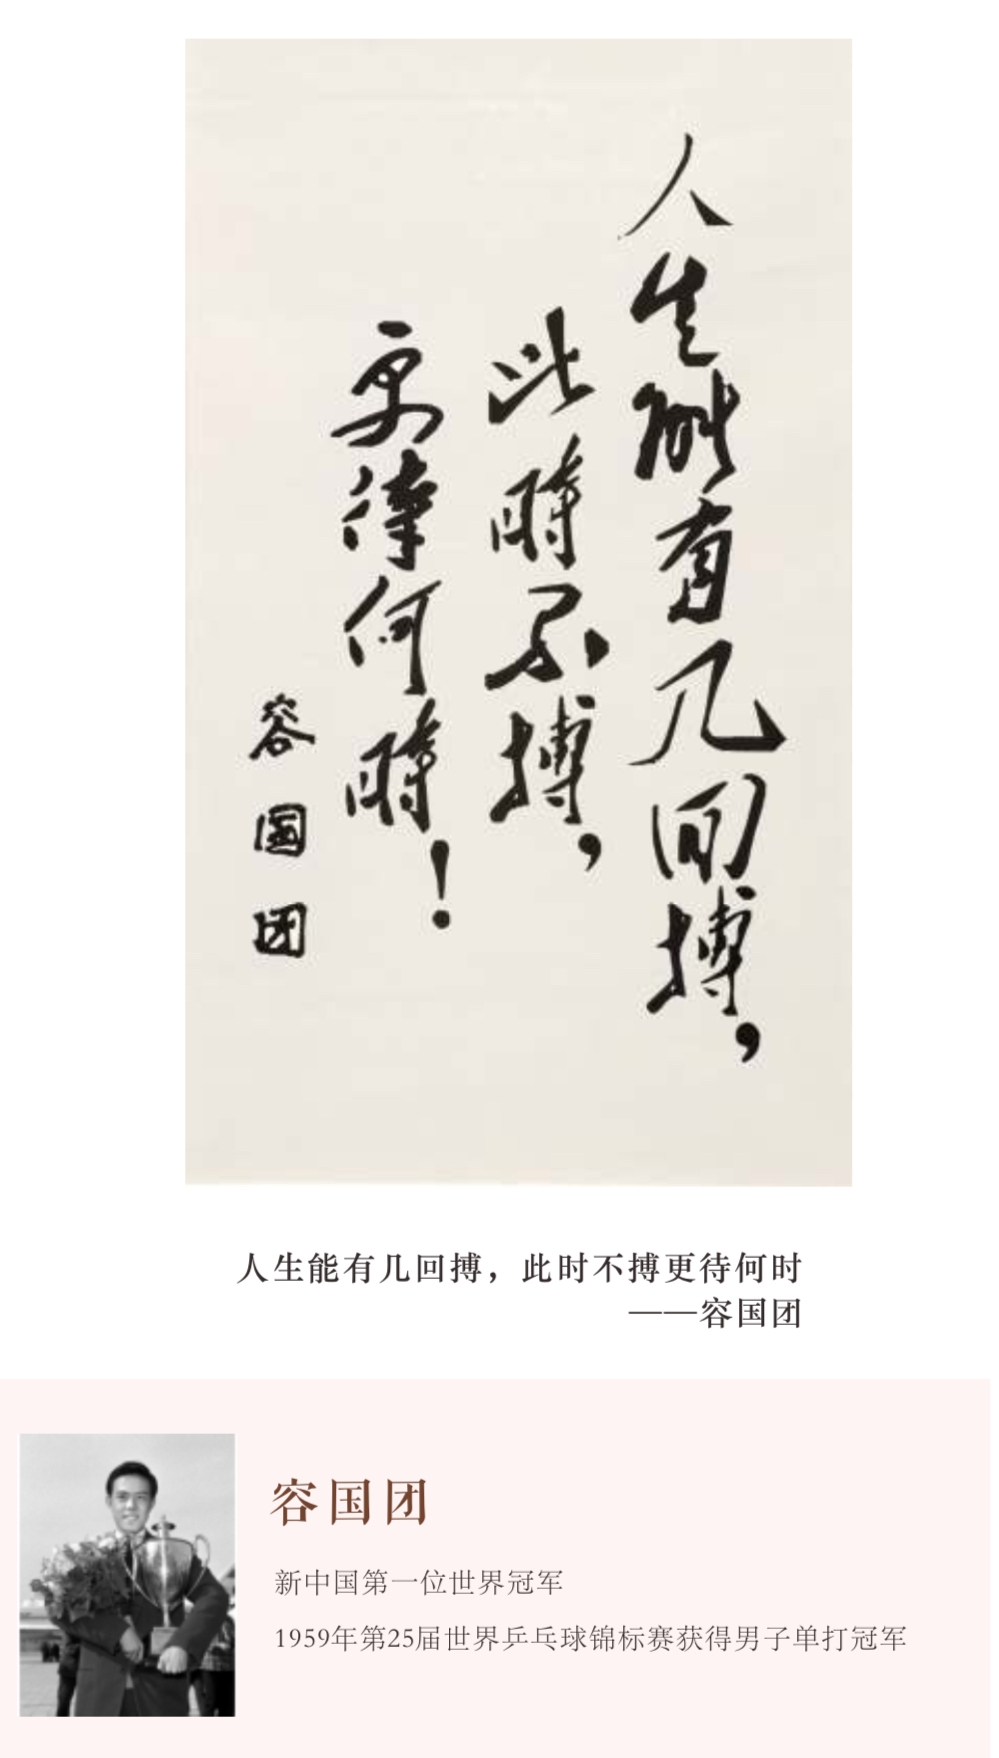 人生能有几回搏，
此時不搏，
更待何時！
容国团
人生能有几回搏，此时不搏更待何时
——容国团
容国团
新中国第一位世界冠军
1959年第25届世界乒乓球锦标赛获得男子单打冠军